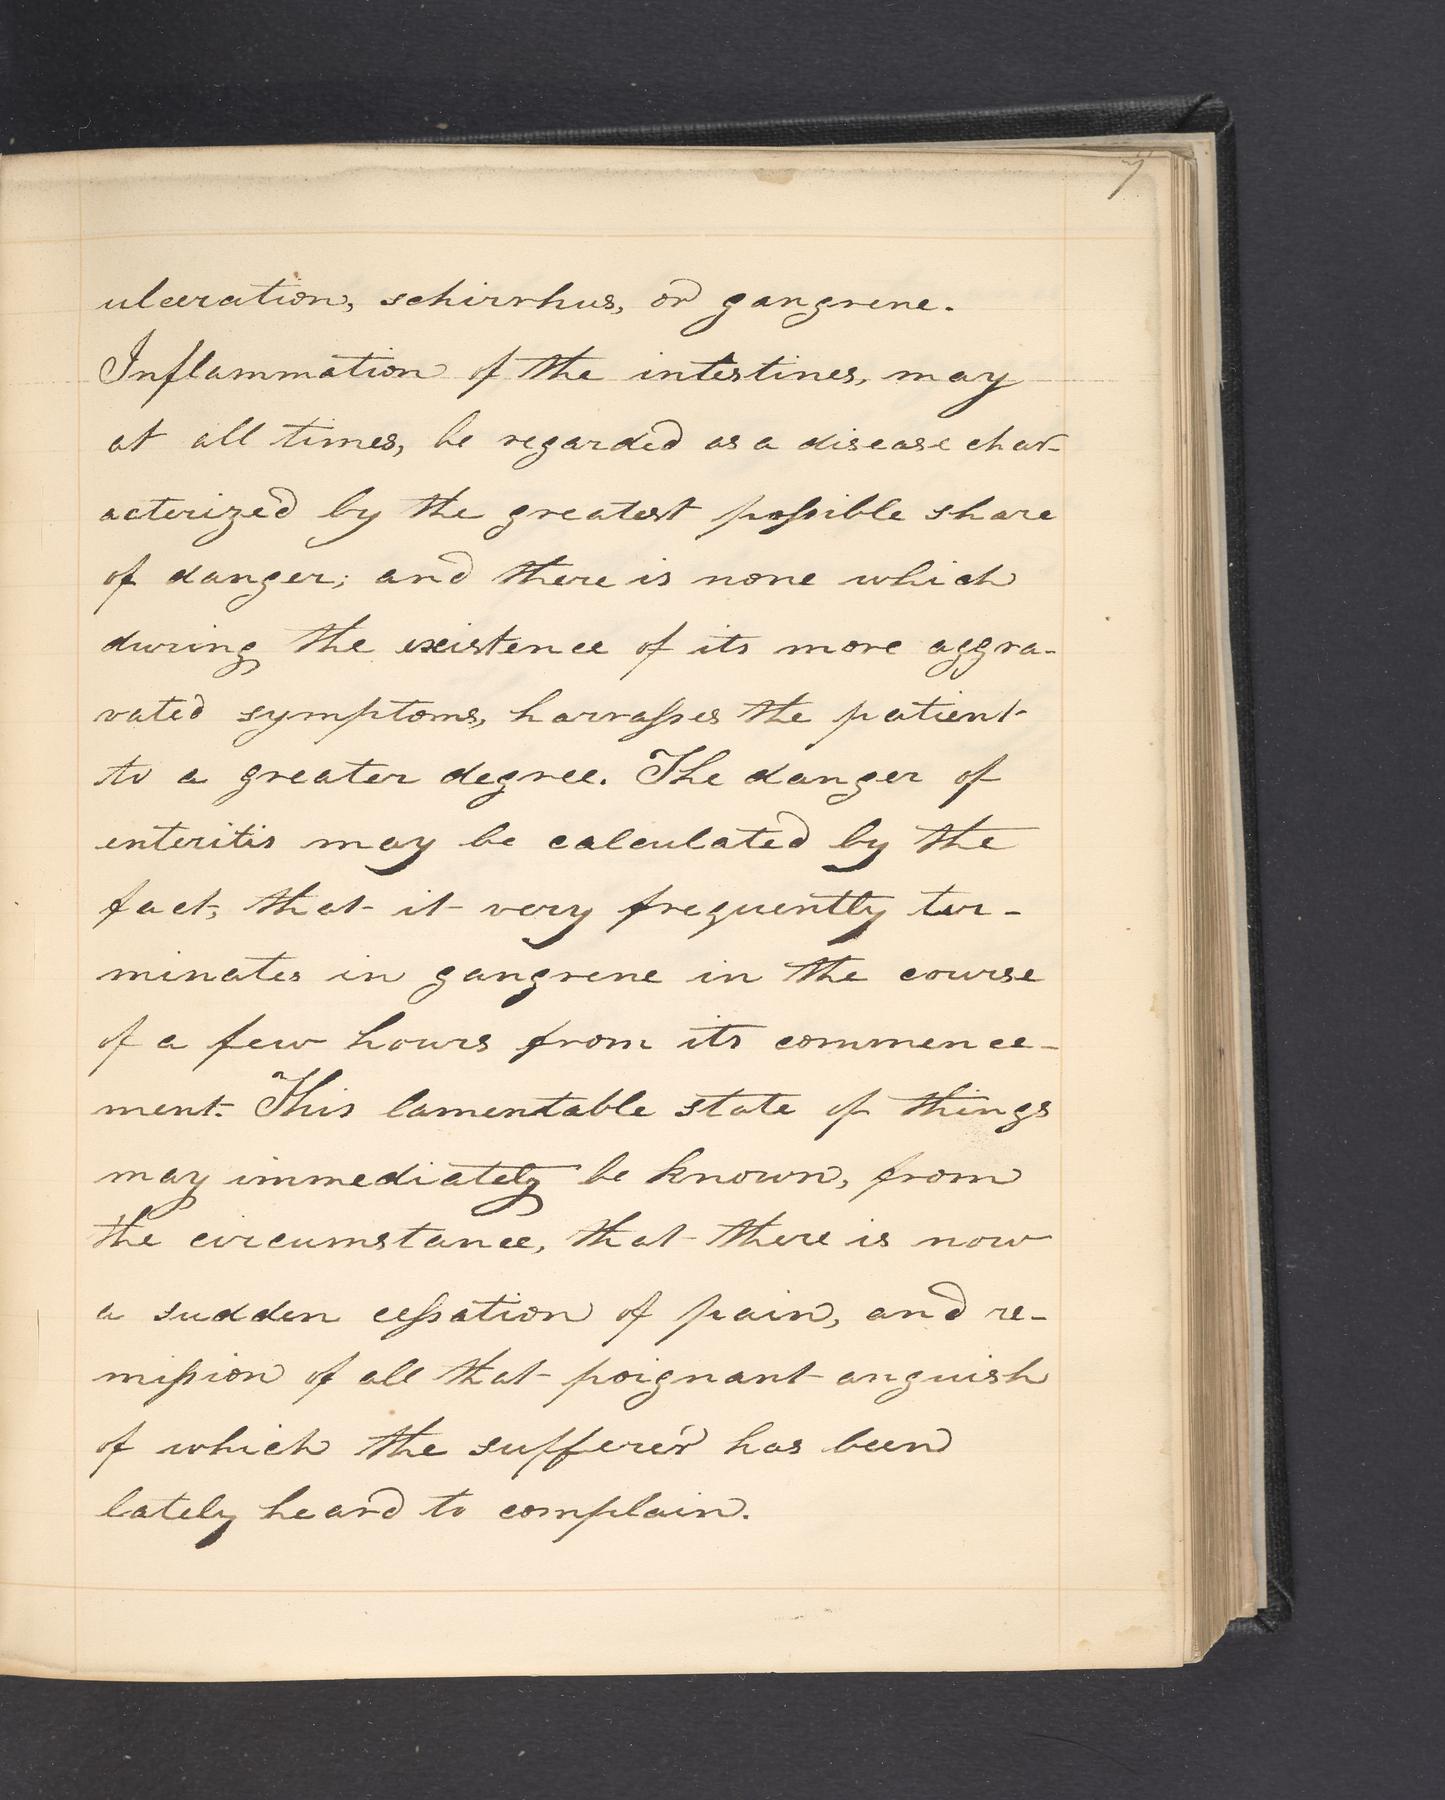 7
ulceration, schirrhus, or gangrene.
Inflammation of the intestines, may
at all times, be regarded as a disease char-
acterized by the greatest possible share
of danger; and there is none which
during the existence of its more aggra-
vated symptoms, harrasses the patient
to a greater degree. The danger of
enteritis may be calculated by the
fact, that it very frequently ter-
minates in gangrene in the course
of a few hours from its commence-
ment. This lamentable state of things
may immediately be known, from
the circumstance, that there is now
a sudden cessation of pain, and re-
mission of all that poignant anguish
of which the sufferer has been
lately heard to complain.